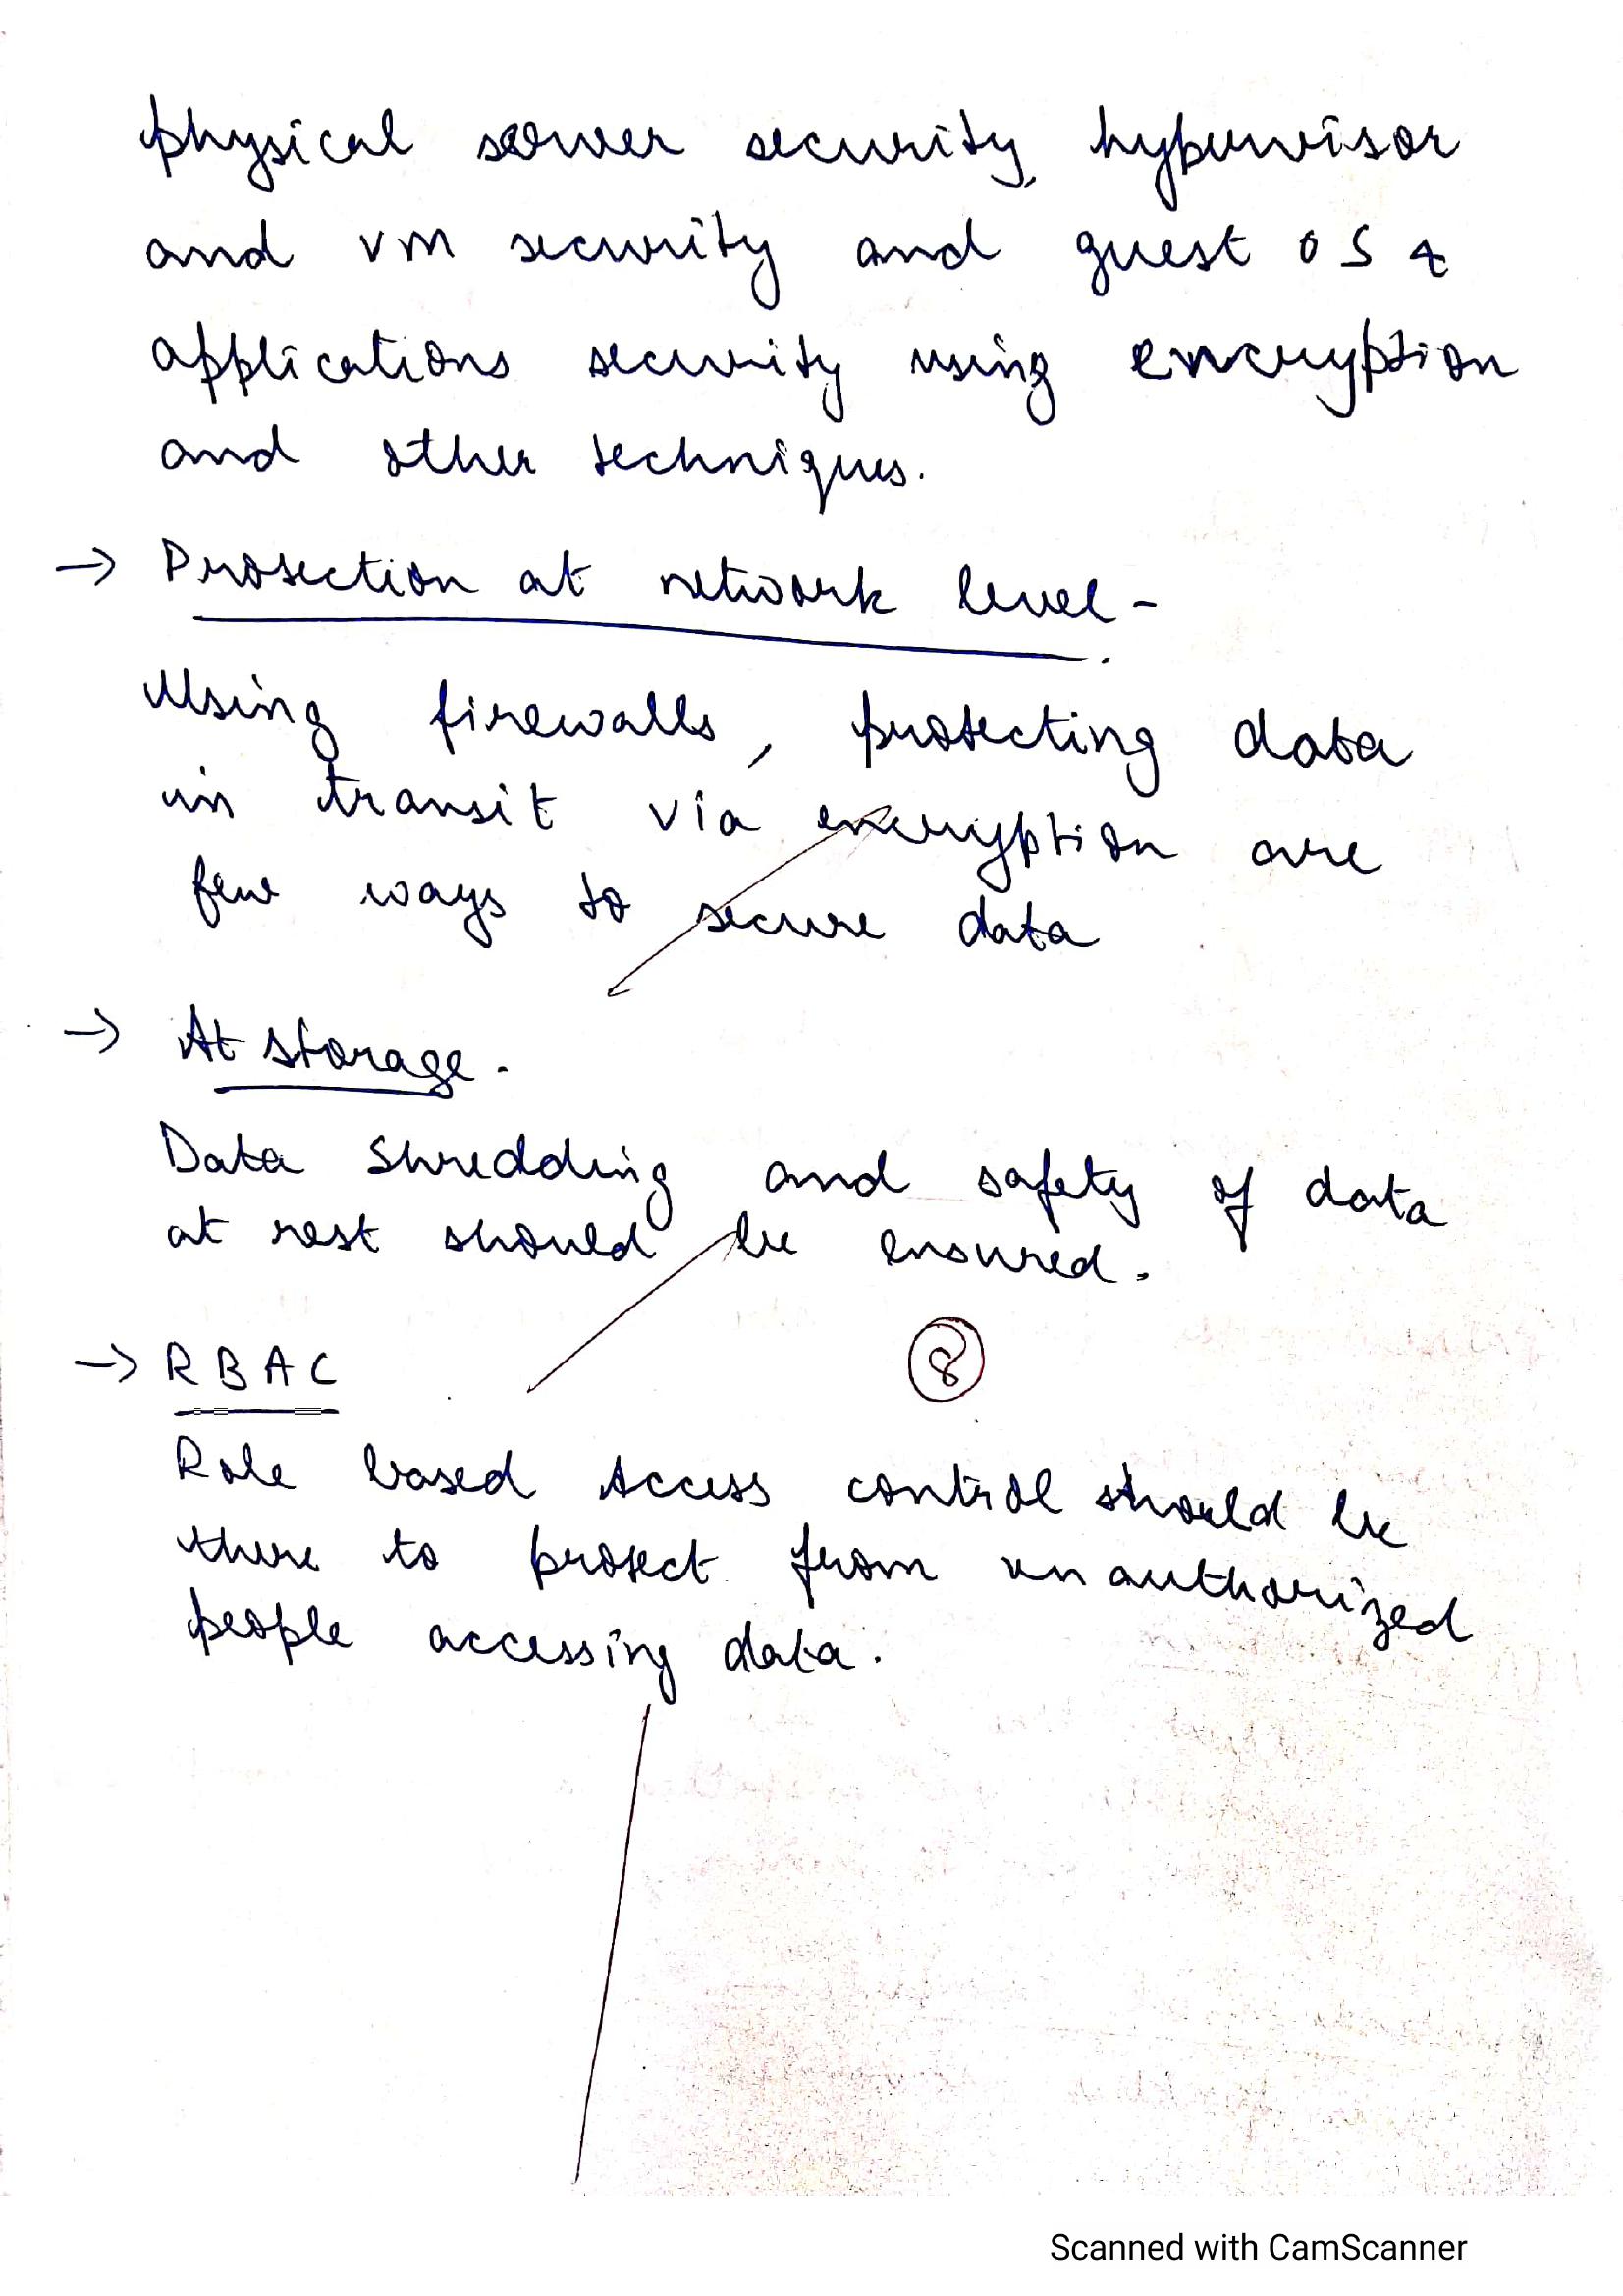 physical server security, hypervisor
and VM security and guest OS &
applications security using encryption
and other techniques.
→ Protection at network level -
Using firewalls, protecting data
in transit via encryption are
few ways to secure data
→ At storage -
Data shredding and safety of data
at rest should be ensured.
8
→ RBAC
Role based Access control should be
there to protect from unauthorized
people accessing data.
Scanned with CamScanner